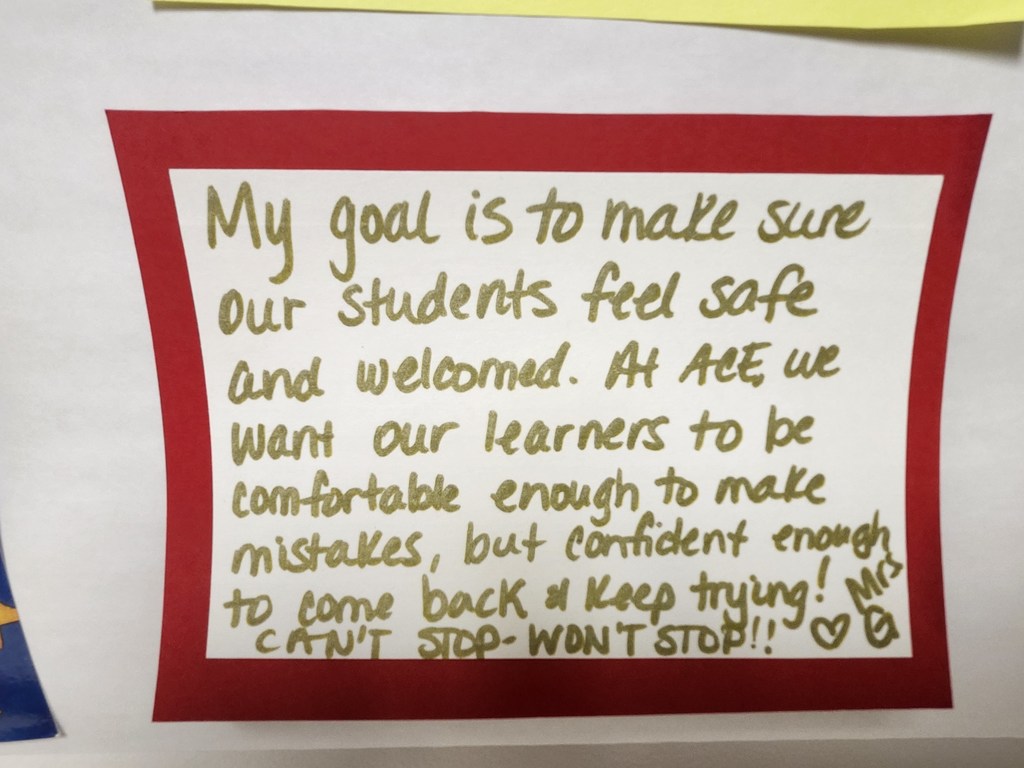 My goal is to make sure
our students feel safe
and welcomed. At ACE, we
want our learners to be
comfortable enough to make
mistakes, but confident enough
to come back & keep trying! Mrs
CAN'T STOP-WON'T STOP!! ♡ G